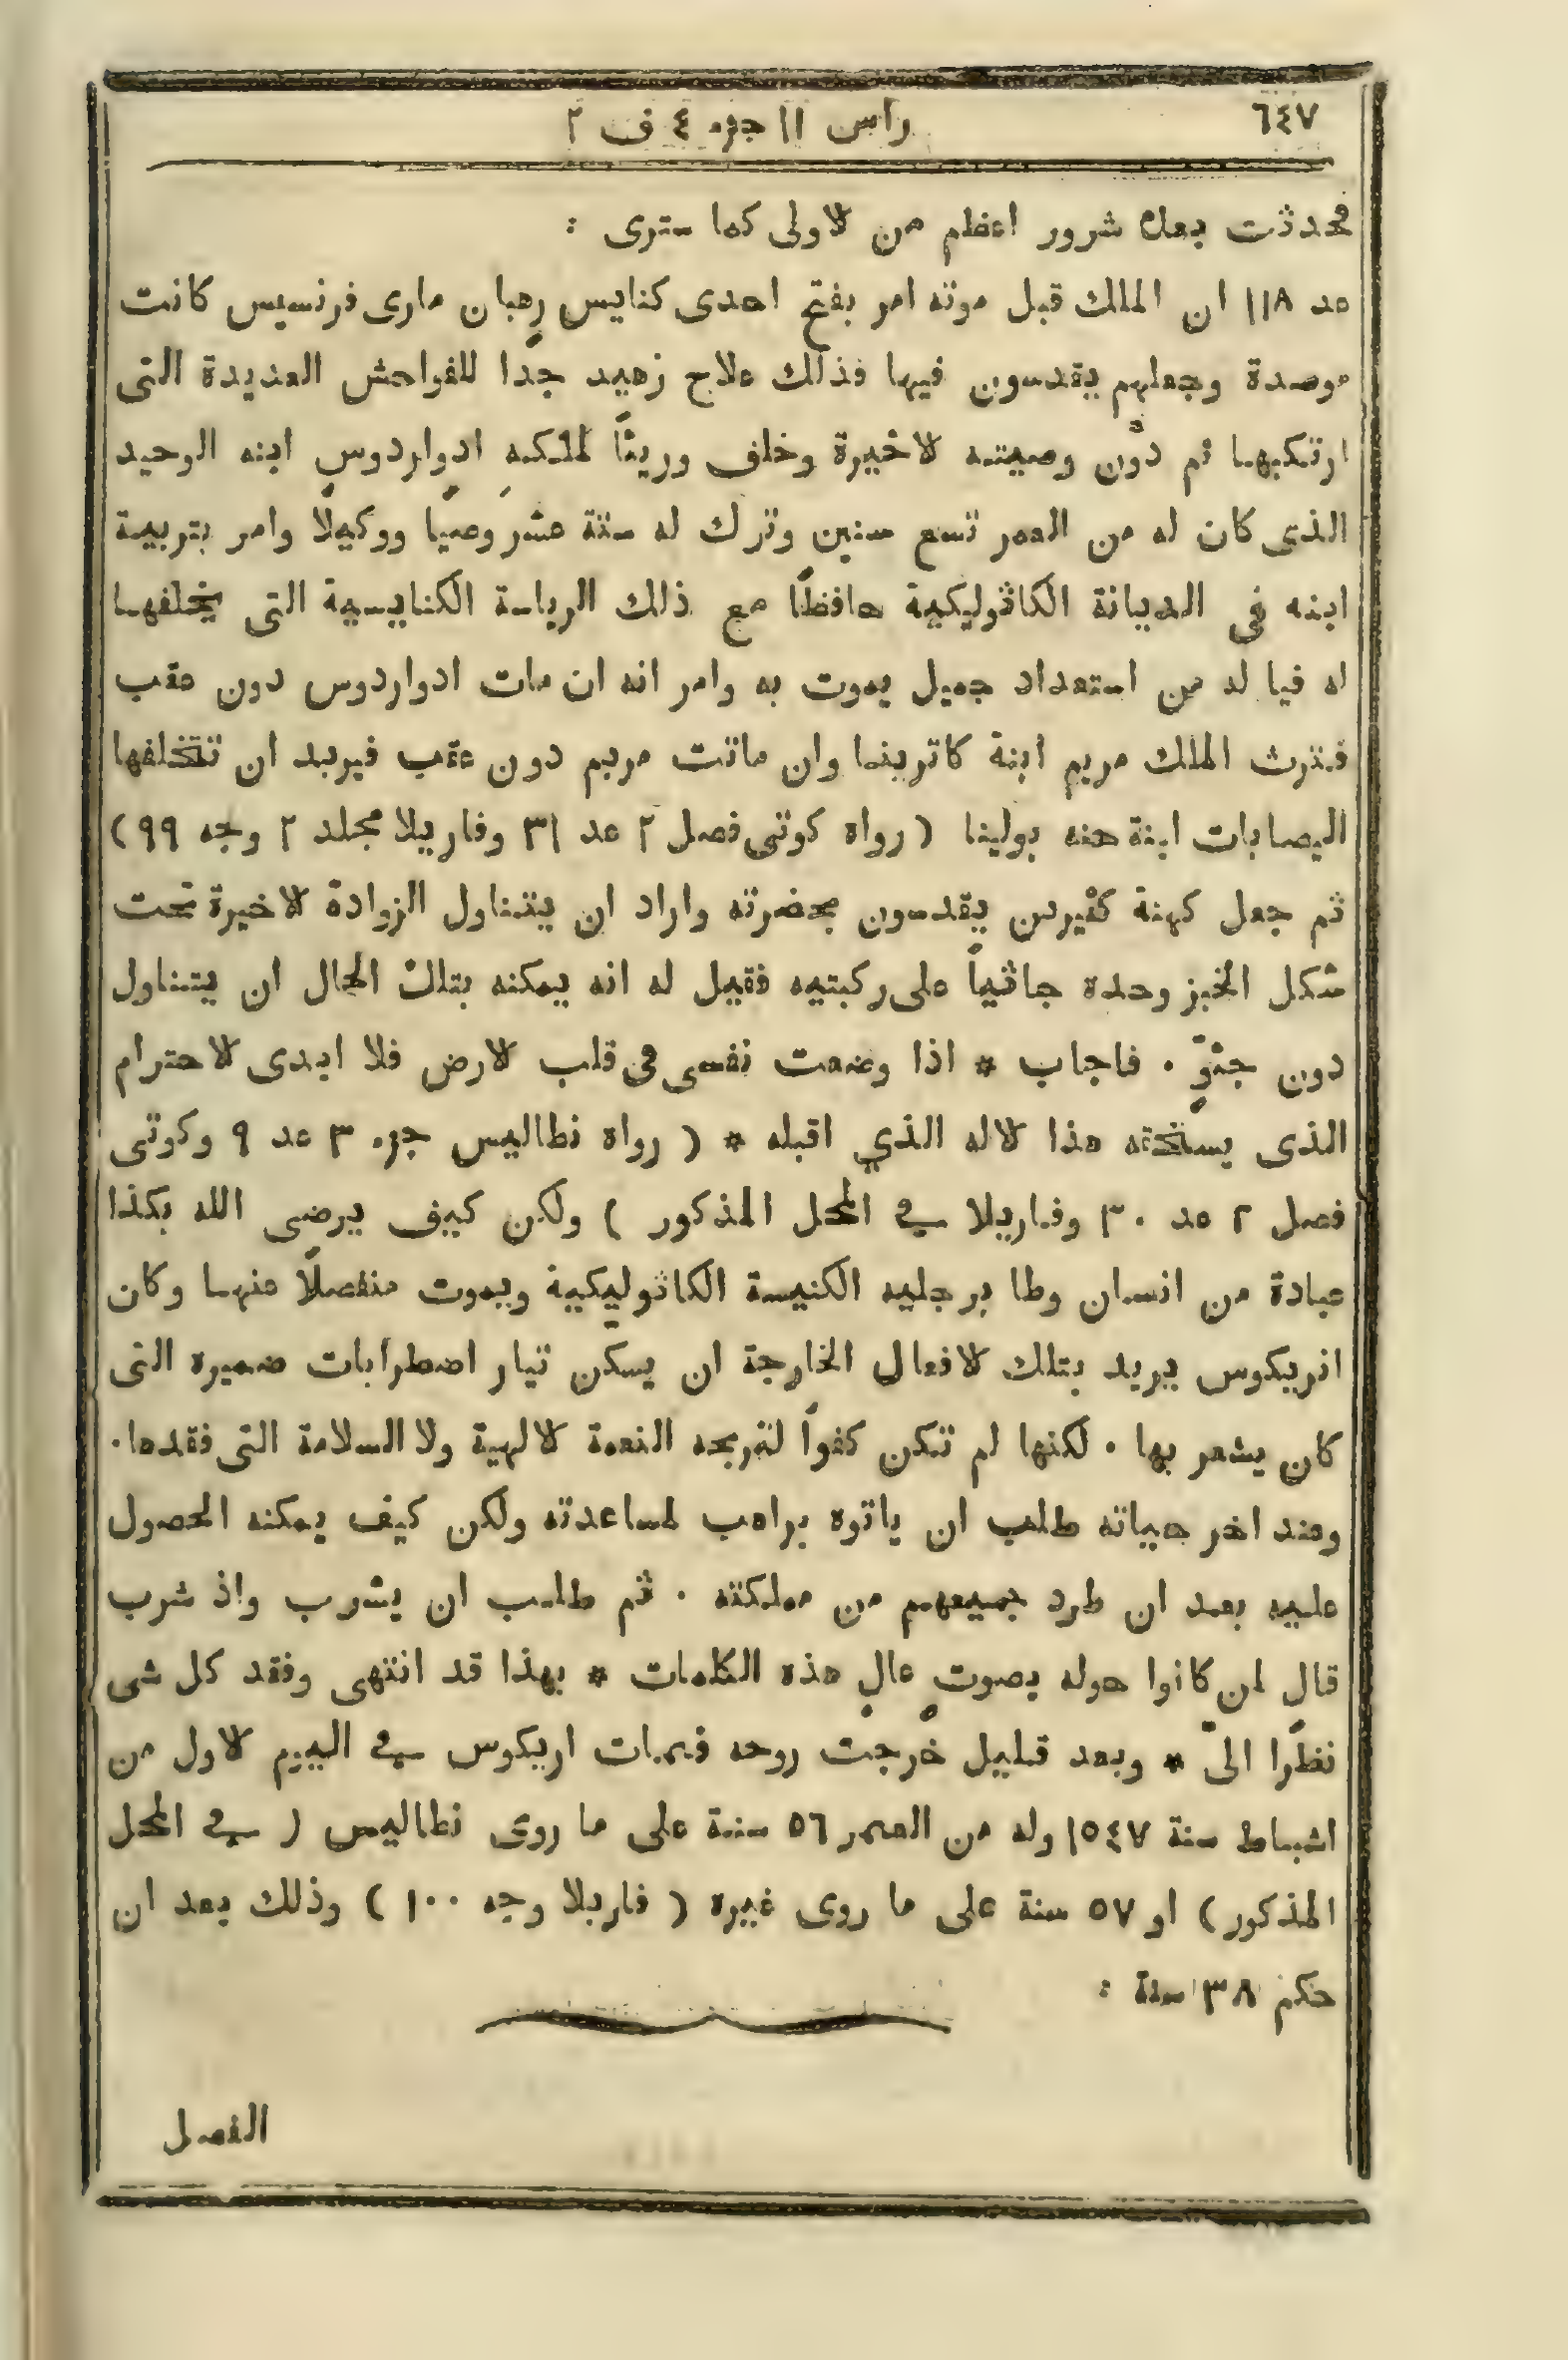 ٦٤٧ راس ١١ جزء ٤ ف ٢
فحدثت بعده شرور اعظم من لاولى كما سترى :
عد ١١٨ ان الملك قبل موته امر بفتح احدى كنايس رهبان مارى فرنسيس كانت
موصدة وجعلهم يقدسون فيها فذلك علاج زهيد جدا للفواحش العديدة التى
ارتكبها ثم دوّن وصيته لاخيرة وخلف وريثًا لملكه ادواردوس ابنه الوحيد
الذى كان له من العمر تسع سنين وترك له ستة عشر وصيًا ووكيلًا وامر بتربية
ابنه فى الديانة الكاثوليكية حافظًا مع ذلك الرياسة الكنايسية التى يخلفها
له فيا له من استعداد جميل يموت به وامر انه ان مات ادواردوس دون عقب
فترث الملك مريم ابنة كاترينا وان ماتت مريم دون عقب فيريد ان تتخلفها
اليصابات ابنة حنه بولينا ( رواه كوتى فصل ٢ عد ٣١ وفاريلا مجلد ٢ وجه ٩٩ )
ثم جعل كهنة كثيرين يقدسون بحضرته واراد ان يتناول الزوادة لاخيرة تحت
شكل الخبز وحده جاثيًا على ركبتيه فقيل له انه يمكنه بتلك الحال ان يتناول
دون جثوٍّ . فاجاب * اذا وضعت نفسى فى قلب لارض فلا ابدى لاحترام
الذى يستحقه هذا لاله الذي اقبله * ( رواه نطاليس جزء ٣ عد ٩ وكوتى
فصل ٢ عد ٣٠ وفاريلا في المحل المذكور ) ولكن كيف يرضى الله بكذا
عبادة من انسان وطا برجليه الكنيسة الكاثوليكية ويموت منفصلًا عنها وكان
انريكوس يريد بتلك لافعال الخارجة ان يسكن تيار اضطرابات ضميره التى
كان يشعر بها . لكنها لم تكن كفوًا لتربحه النعمة لالهية ولا السلامة التى فقدها .
وعند اخر حياته طلب ان ياتوه براهب لمساعدته ولكن كيف يمكنه الحصول
عليه بعد ان طرد جميعهم من مملكته . ثم طلب ان يشرب واذ شرب
قال لمن كانوا حوله بصوتٍ عالٍ هذه الكلمات * بهذا قد انتهى وفقد كل شى
نظرًا الىّ * وبعد قليل خرجت روحه فمات اريكوس في اليوم لاول من
اشباط سنة ١٥٤٧ وله من العمر ٥٦ سنة على ما روى نطاليس ( في المحل
المذكور ) او ٥٧ سنة على ما روى غيره ( فاريلا وجه ١٠٠ ) وذلك بعد ان
حكم ٣٨ سنة :
الفصل